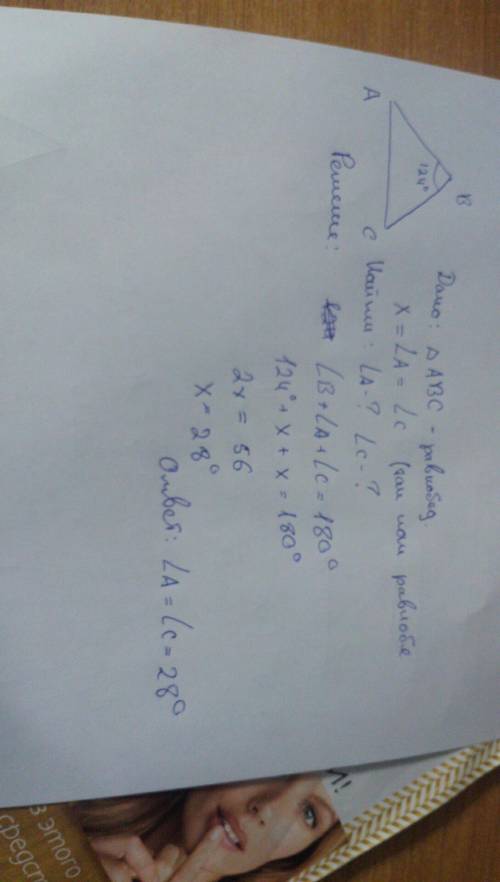 B
124°
A
C
Дано: △ABC - равнобед.
X = ∠A = ∠C (так как равнобе
Найти: ∠A-? ∠C-?
Решение:
∠B+∠A+∠C=180°
124°+x+x=180°
2x = 56
x = 28°
Ответ: ∠A=∠C=28°
Л!
з этого
средст